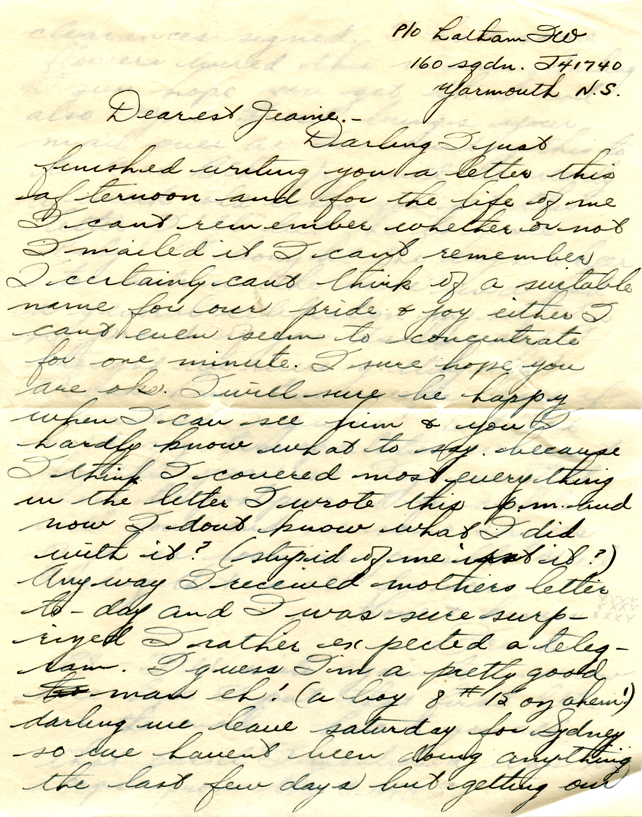 P/O Latham TW
160 sqdn. J41740
Yarmouth N.S.
Dearest Jeanie.-
Darling I just
finished writing you a letter this
afternoon and for the life of me
I cant remember whether or not
I mailed it I can't remember
I certainly cant think of a suitable
name for our pride & joy either I
cant even seem to concentrate
for one minute. I sure hope you
are ok. I will sure be happy
when I can see him & you I
hardly know what to say. because
I think I covered most everything
in the letter I wrote this p.m. and
now I dont know what I did
with it? (stupid of me isnt it?)
Anyway I received mothers letter
to-day and I was sure surp-
rized I rather expected a teleg-
ram. I guess I'm a pretty good
man eh! (a boy 8 # 12 oz ahem!)
darling we leave saturday for Sydney
so we havent been doing anything
the last few days but getting our